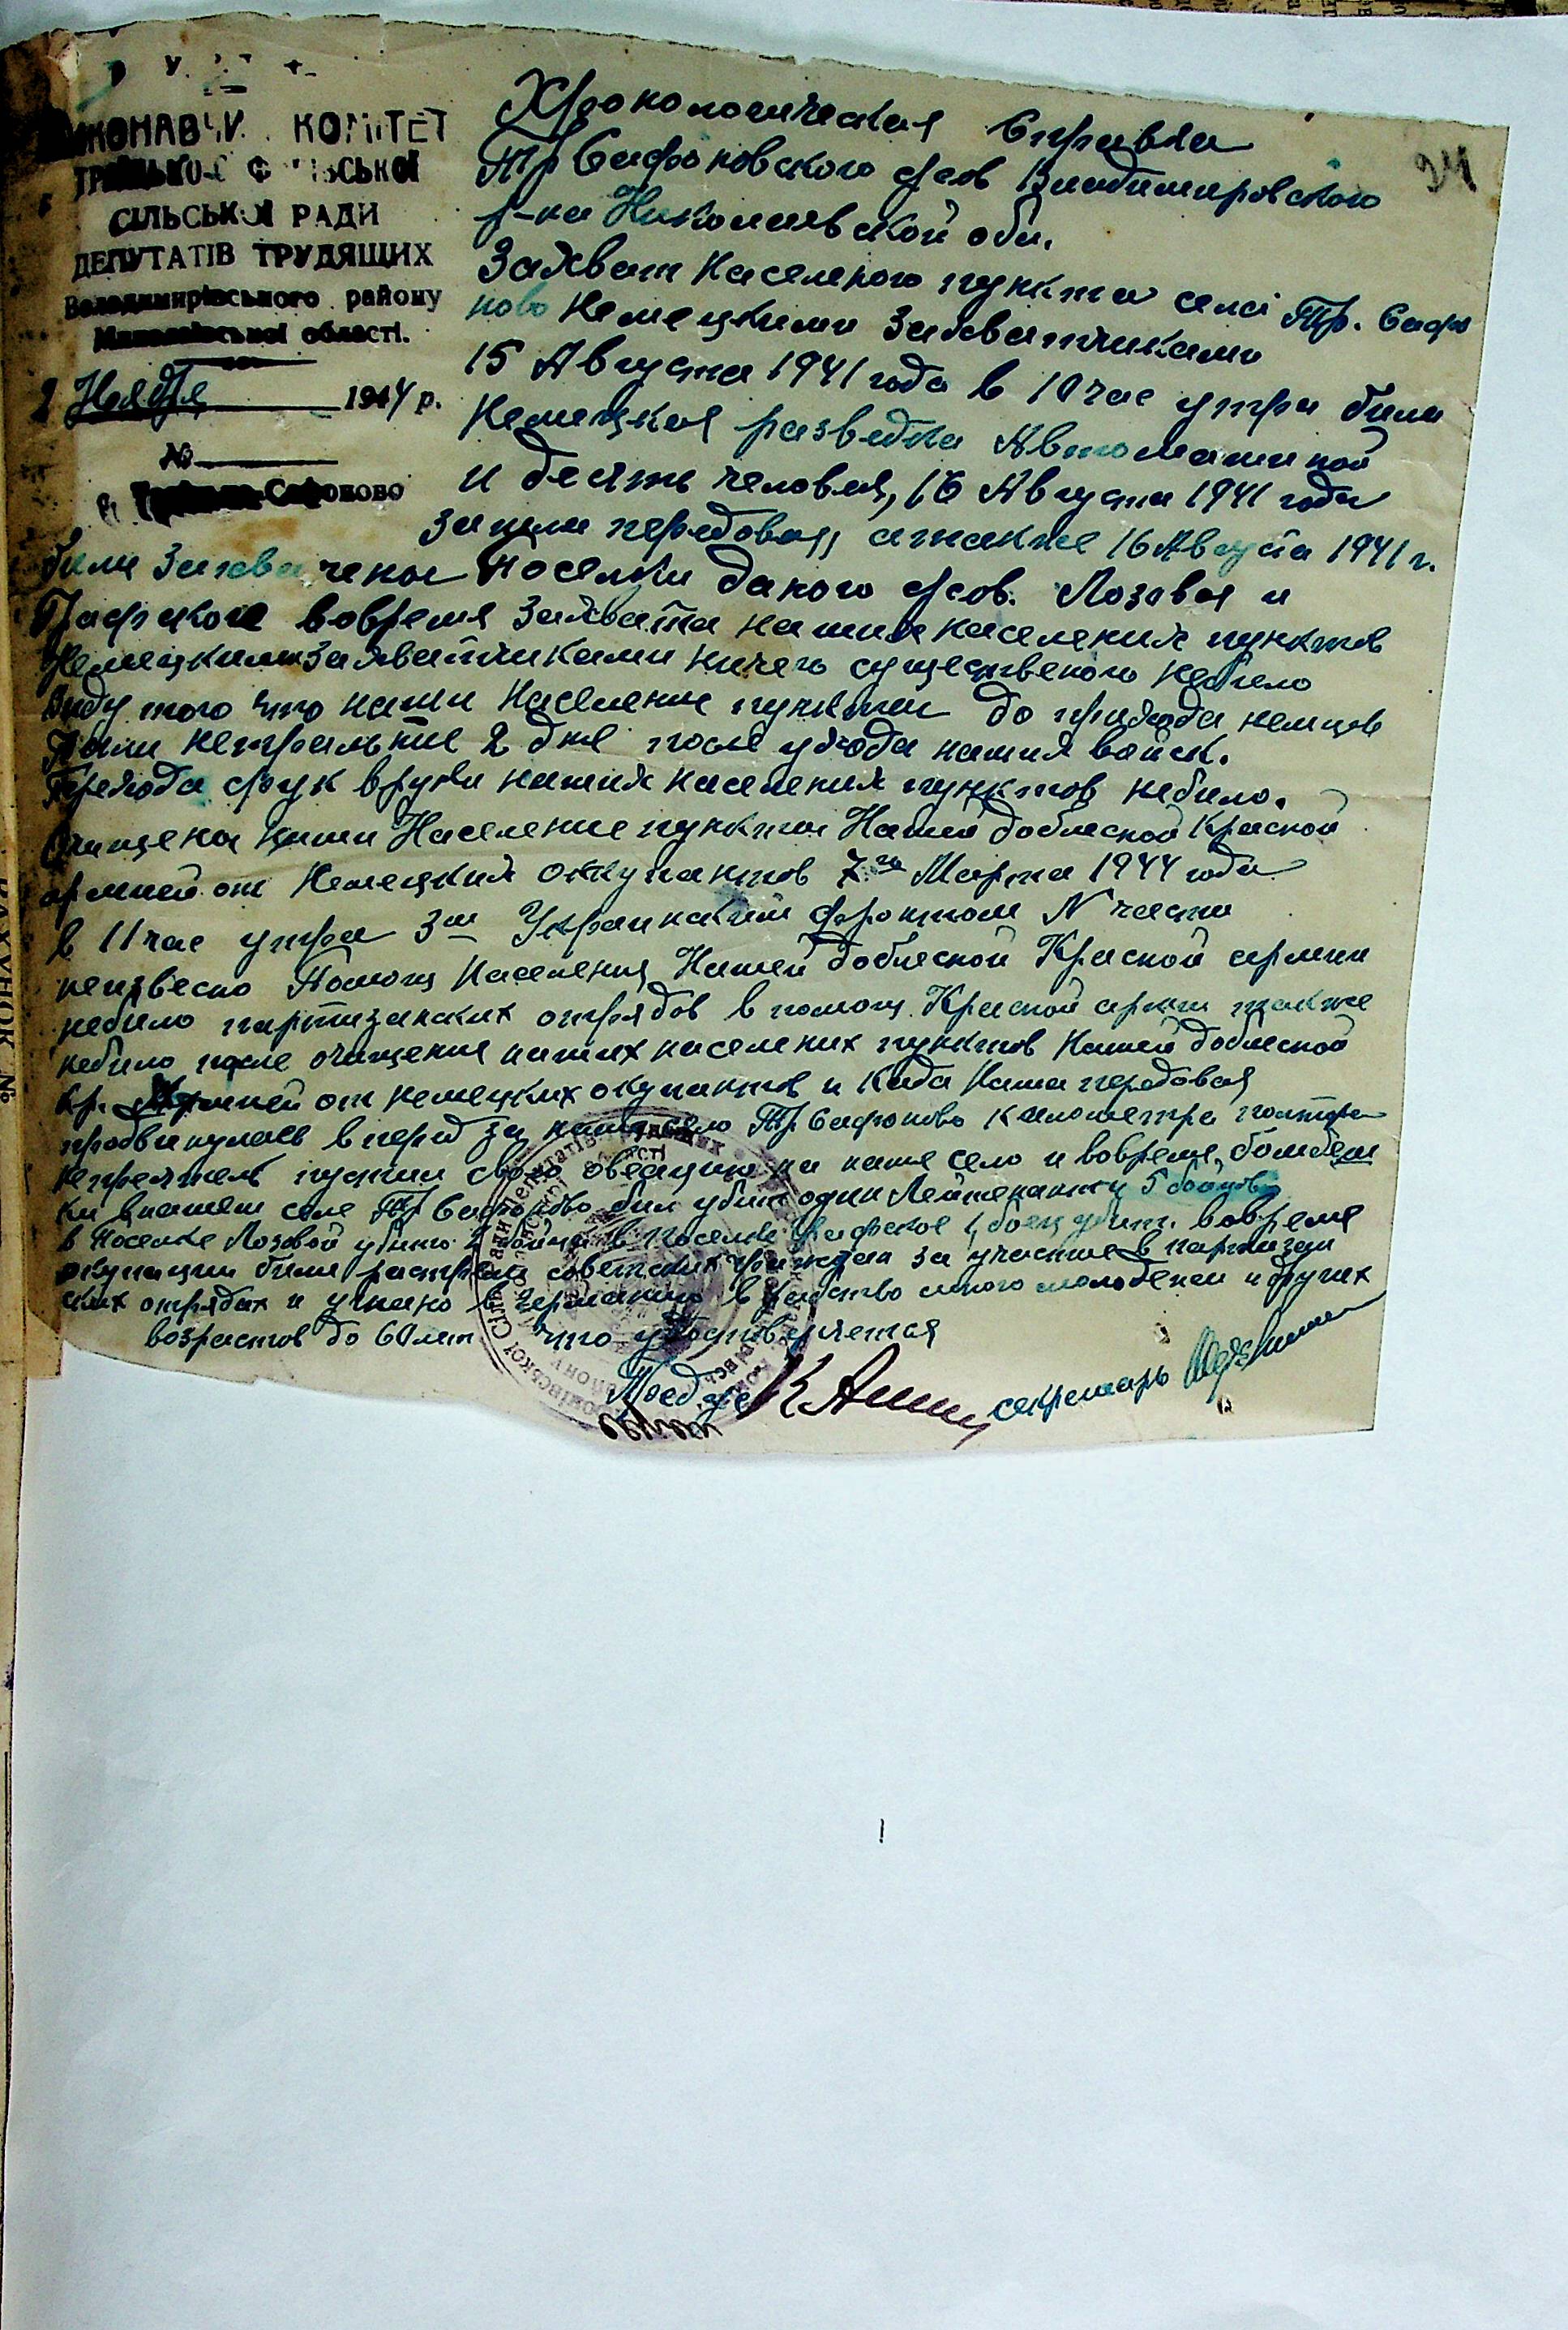 У.
ВИКОНАВЧИЙ КОМІТЕТ
ТРОЇЦЬКО-САФОНІВСЬКОЇ
СІЛЬСЬКОЇ РАДИ
ДЕПУТАТІВ ТРУДЯЩИХ
Володимирівського району
Миколаївської області.
2 Ноября 1944 р.
№
с. Троїцько-Сафоново
24
Хронологическая Справка
Тр Сафоновского с/сов Владимировского
р-на Николаевской обл.
Захват населеного пункта села Тр. Сафо
ново немецкими захватчиками
15 Августа 1941 года в 10 час утра били
немецкая разведка Автомашиной
и десять человек, 16 Августа 1941 года
зашли передовая, а также 16 Августа 1941 г.
били захвачены поселки даного с/сов. Лозовая и
вовремя захвата наших населених пунктов
Немецкими захватчиками ничего существеного небило
Виду того что наши население пункты до прихода немцов
били нетральные 2 дне после ухода наших войск.
Перехода с рук в руки наших населених пунктов небило.
Очищена наши Население пункты Нашей доблесной Красной
армией от Немецких оккупантов 7го Марта 1944 года
в 11 час утра 3м Украинским фронтом N части
неизвесно Помощ населения Нашей доблесной Красной армии
небило партизанских отрядов в помощ Красной армии также
небило после очищения наших населених пунктов Нашей доблесной
кр. Армией от немецких окупантов и Када Наша передовая
продвинулась вперед за наше село Тр Сафоново километра полтора
непреятель пустил свою овеацию на наше село и вовремя бомбеш
ки в нашем селе Тр Сафоново бил убит один Лейтенант и 5 бойцов
в поселке Лозовой убито 2 бойца в поселке 1 боец убит. вовремя
окупации били растрел советских граждан за участие в партизан
ских отрядах и угнано в Германию в рабство много молодежи и других
возрастов до 60 лет что удостовиряется
Пред с/с
секретарь